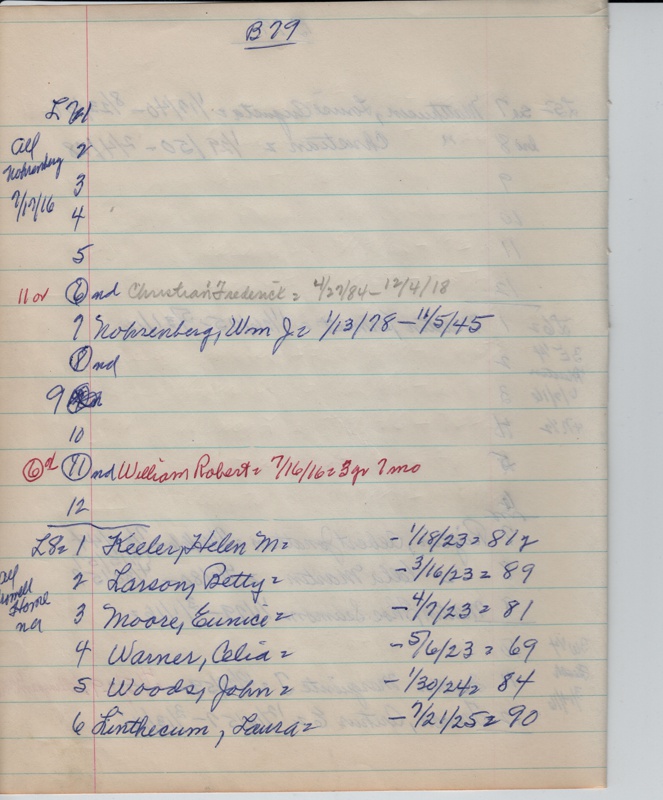 B79
L7=1
all
Nohrenberg 2
3
7/17/16 4
5
11 or 6 nd Christian Frederick = 4/27/84 - 12/4/18
7 Nohrenberg, Wm J = 1/13/78 - 11/5/45
8 nd
9
10
6d 11 nd William Robert = 7/16/16 = 3yr 7mo
12
L8 = 1 Keeler, Helen M = - 1/18/23 = 81y
all 2 Larson, Betty = - 3/16/23 = 89
Home 3 Moore, Eunice = - 4/7/23 = 81
na
4 Warner, Celia = - 5/6/23 = 69
5 Woods, John = - 1/30/24 = 84
6 Linthecum, Laura = - 7/21/25 = 90